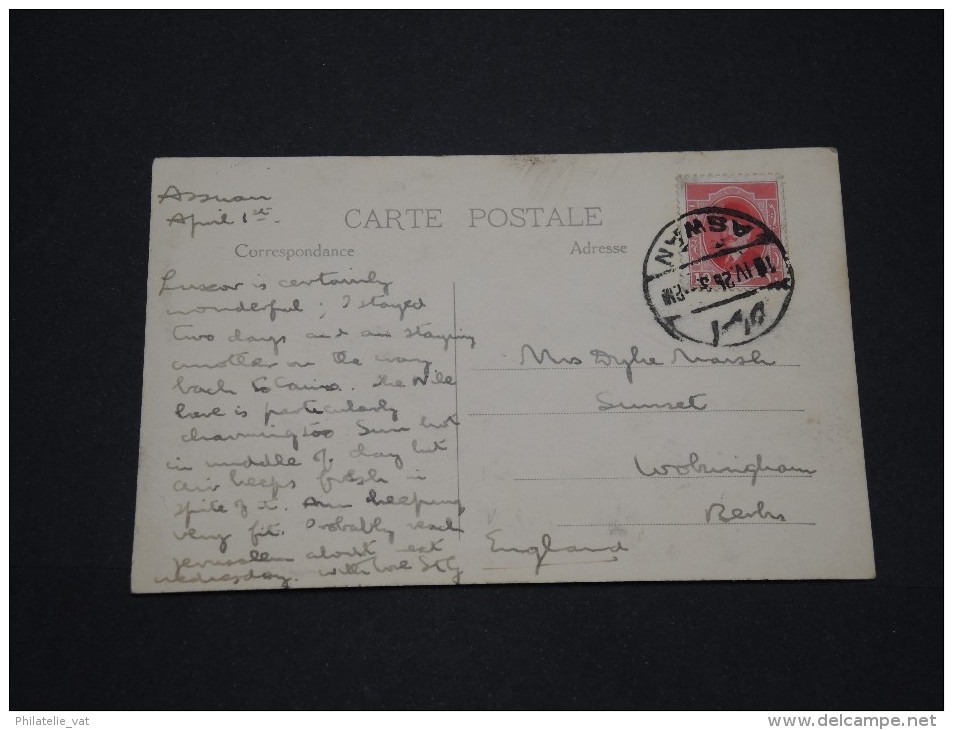 Assuan
April 1st.
CARTE POSTALE
Correspondance
Adresse
Luxor is certainly
wonderful; I stayed
two days and am staying
another on the way
back to Cairo. The Nile
here is particularly
charming too Sun hot
in middle of day but
air keeps fresh in
spite of it. Am keeping
very fit. Probably reach
Jerusalem about
wednesday. With love
ASWAN
IV. 26
PM
Mrs Dyke Marsh
Sunset
Wokingham
Berks
England
Philatelie_vat
www.delcampe.net